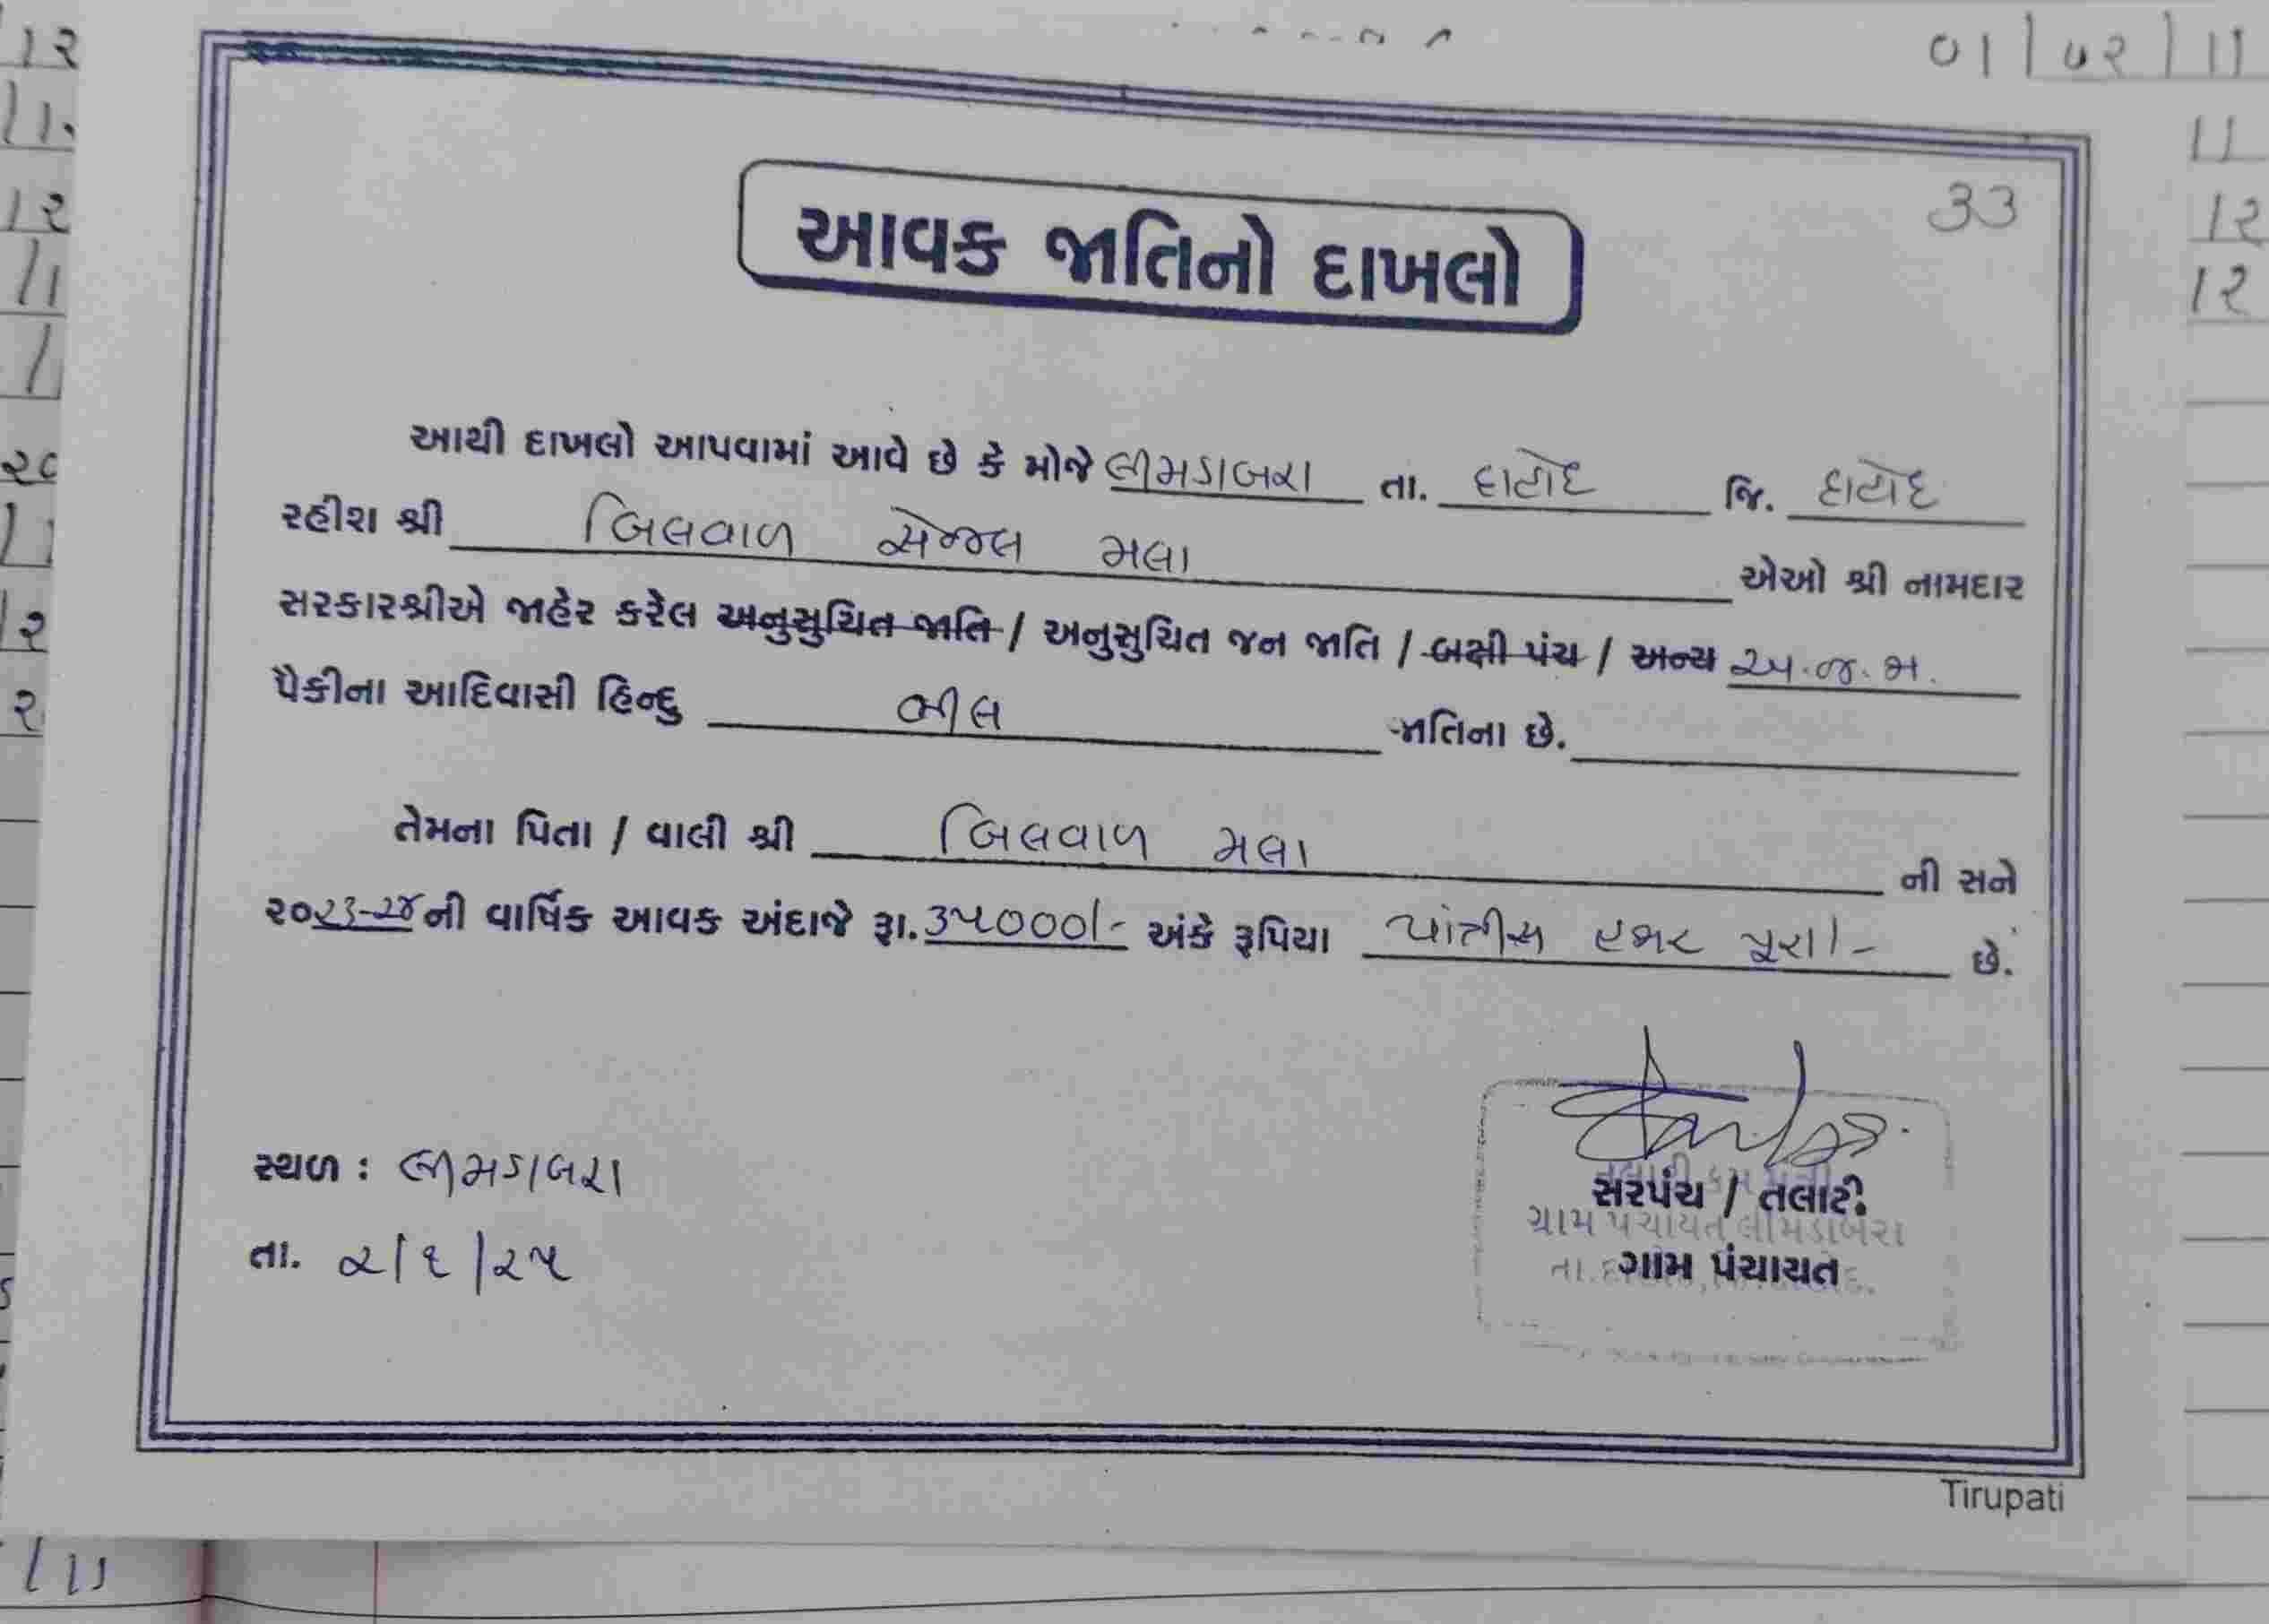 ૦૧/૦૨/૧૧
33
આવક જાતિનો દાખલો
આથી દાખલો આપવામાં આવે છે કે મોજે લીમડાબરા તા. દાહોદ જિ. દાહોદ
રહીશ શ્રી બિલવાળ સેજલ મલા એઓ શ્રી નામદાર
સરકારશ્રીએ જાહેર કરેલ અનુસુચિત જાતિ / અનુસુચિત જન જાતિ / બક્ષી પંચ / અન્ય અ.જ.જા.
પૈકીના આદિવાસી હિન્દુ ભીલ જાતિના છે.
તેમના પિતા / વાલી શ્રી બિલવાળ મલા ની સને
૨૦૨૩-૨૪ ની વાર્ષિક આવક અંદાજે રૂા. ૩૫૦૦૦/- અંકે રૂપિયા પાંત્રીસ હજાર પૂરા/- છે.
સ્થળ : લીમડાબરા
તા. ૨/૧/૨૫
સરપંચ / તલાટી
ગ્રામ પંચાયત લીમડાબરા
ગામ પંચાયત
Tirupati